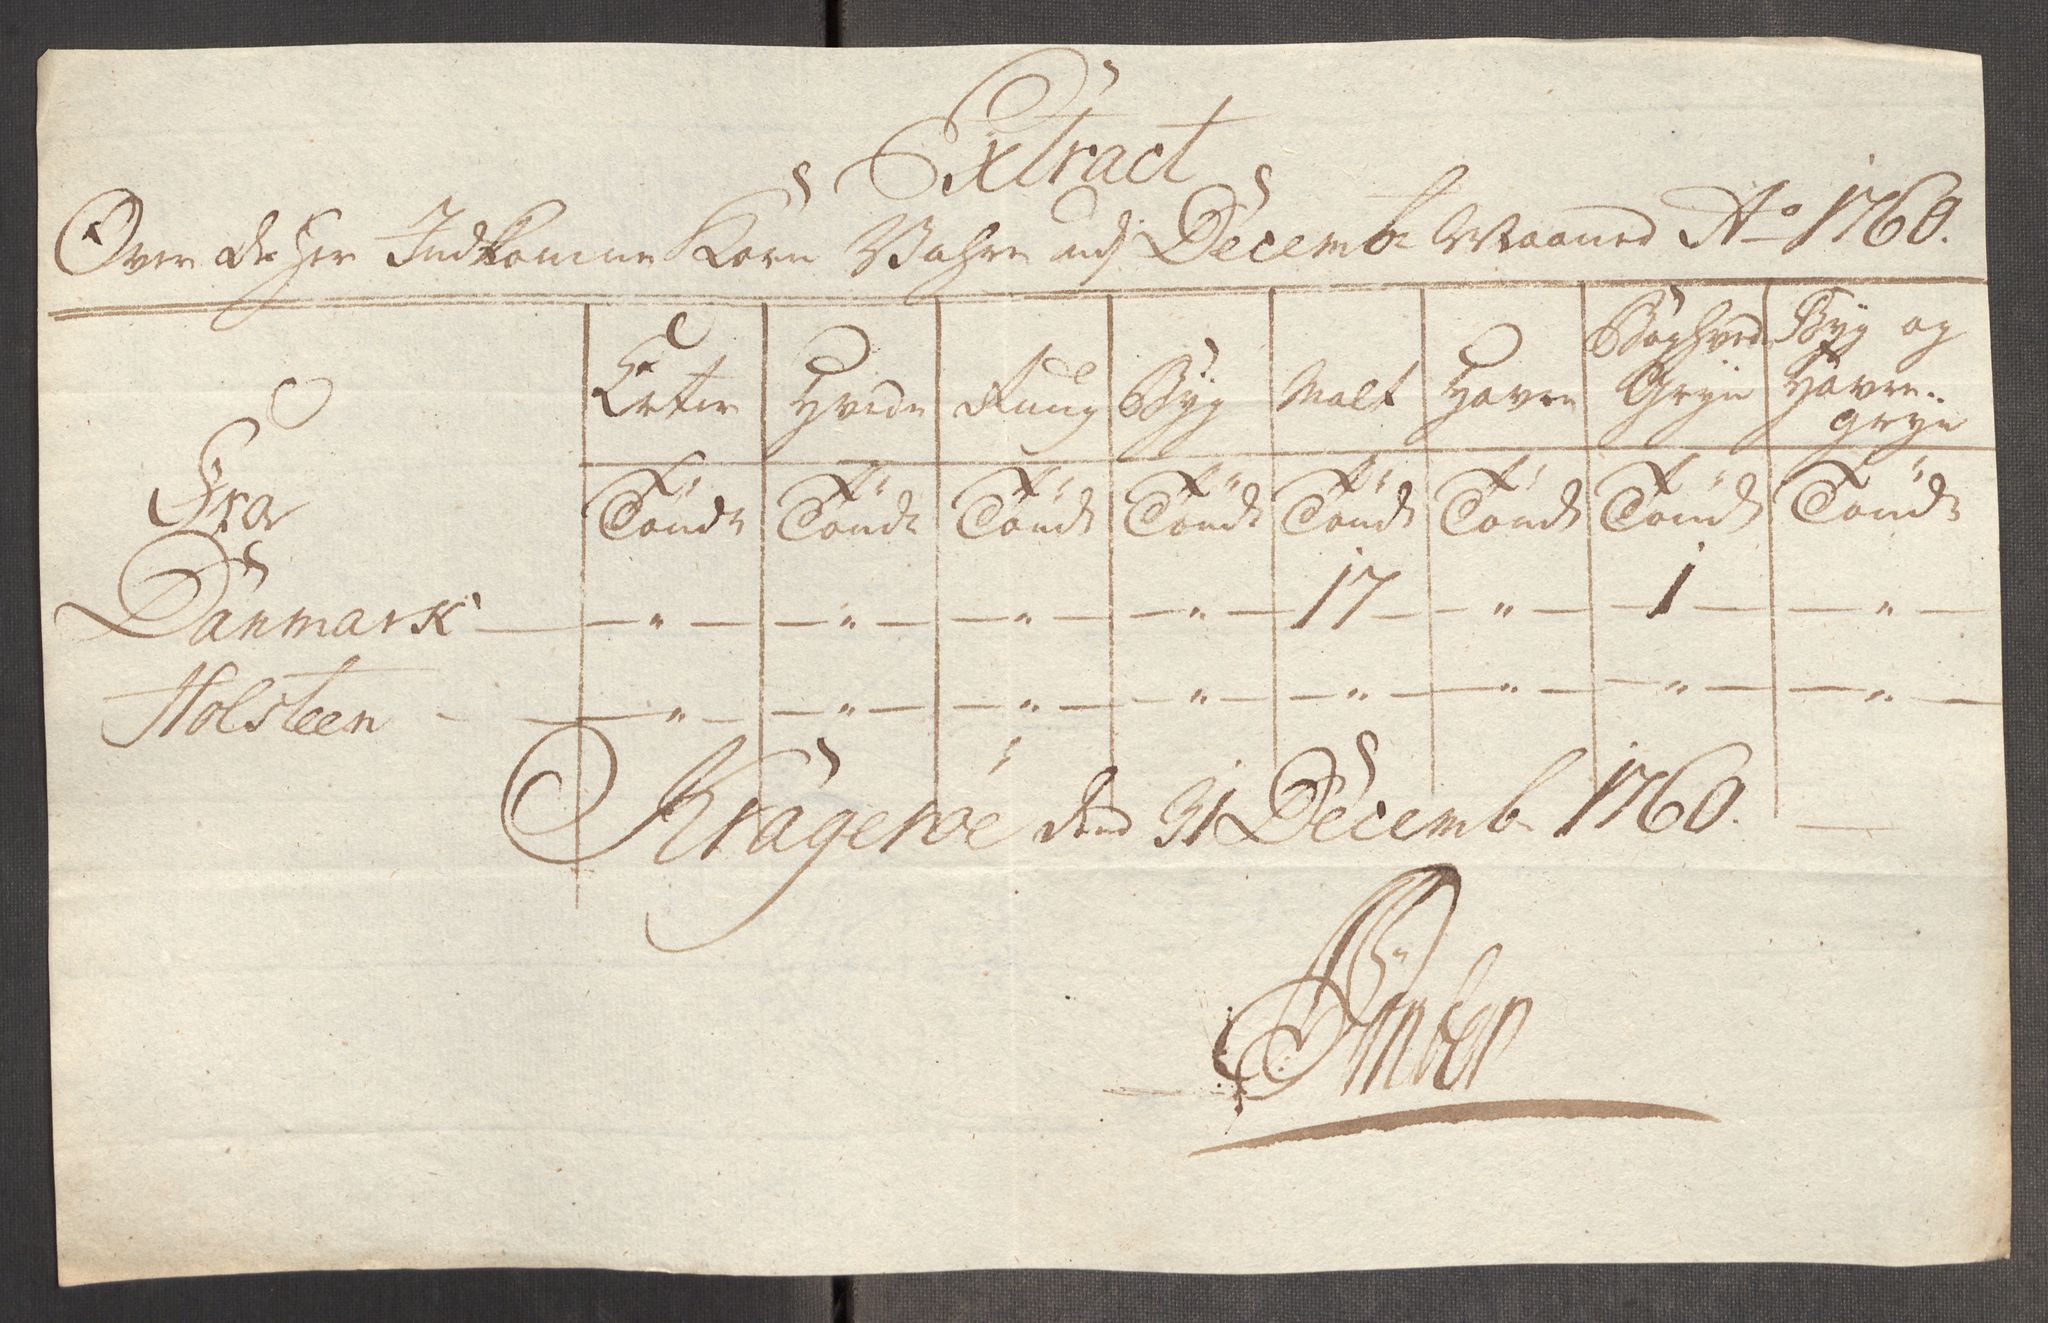 Extract
Over de her Indkomne Korn Vahre udj Decembr Maaned Ao 1760.
Erter Hvede Rug Byg Malt Havre Boghvede Gryn Byg og Havre gryn
Fra Tönde Tönde Tönd Tönde Tönd Tönd Tönd Tönde
Danmark — " — — " — — " — — " — 17 — " — 1 — — " —
Holsteen — " — — " — — " — — " — — " — — " — — " — — " —
Krageröe dend 31 Decembr 1760.